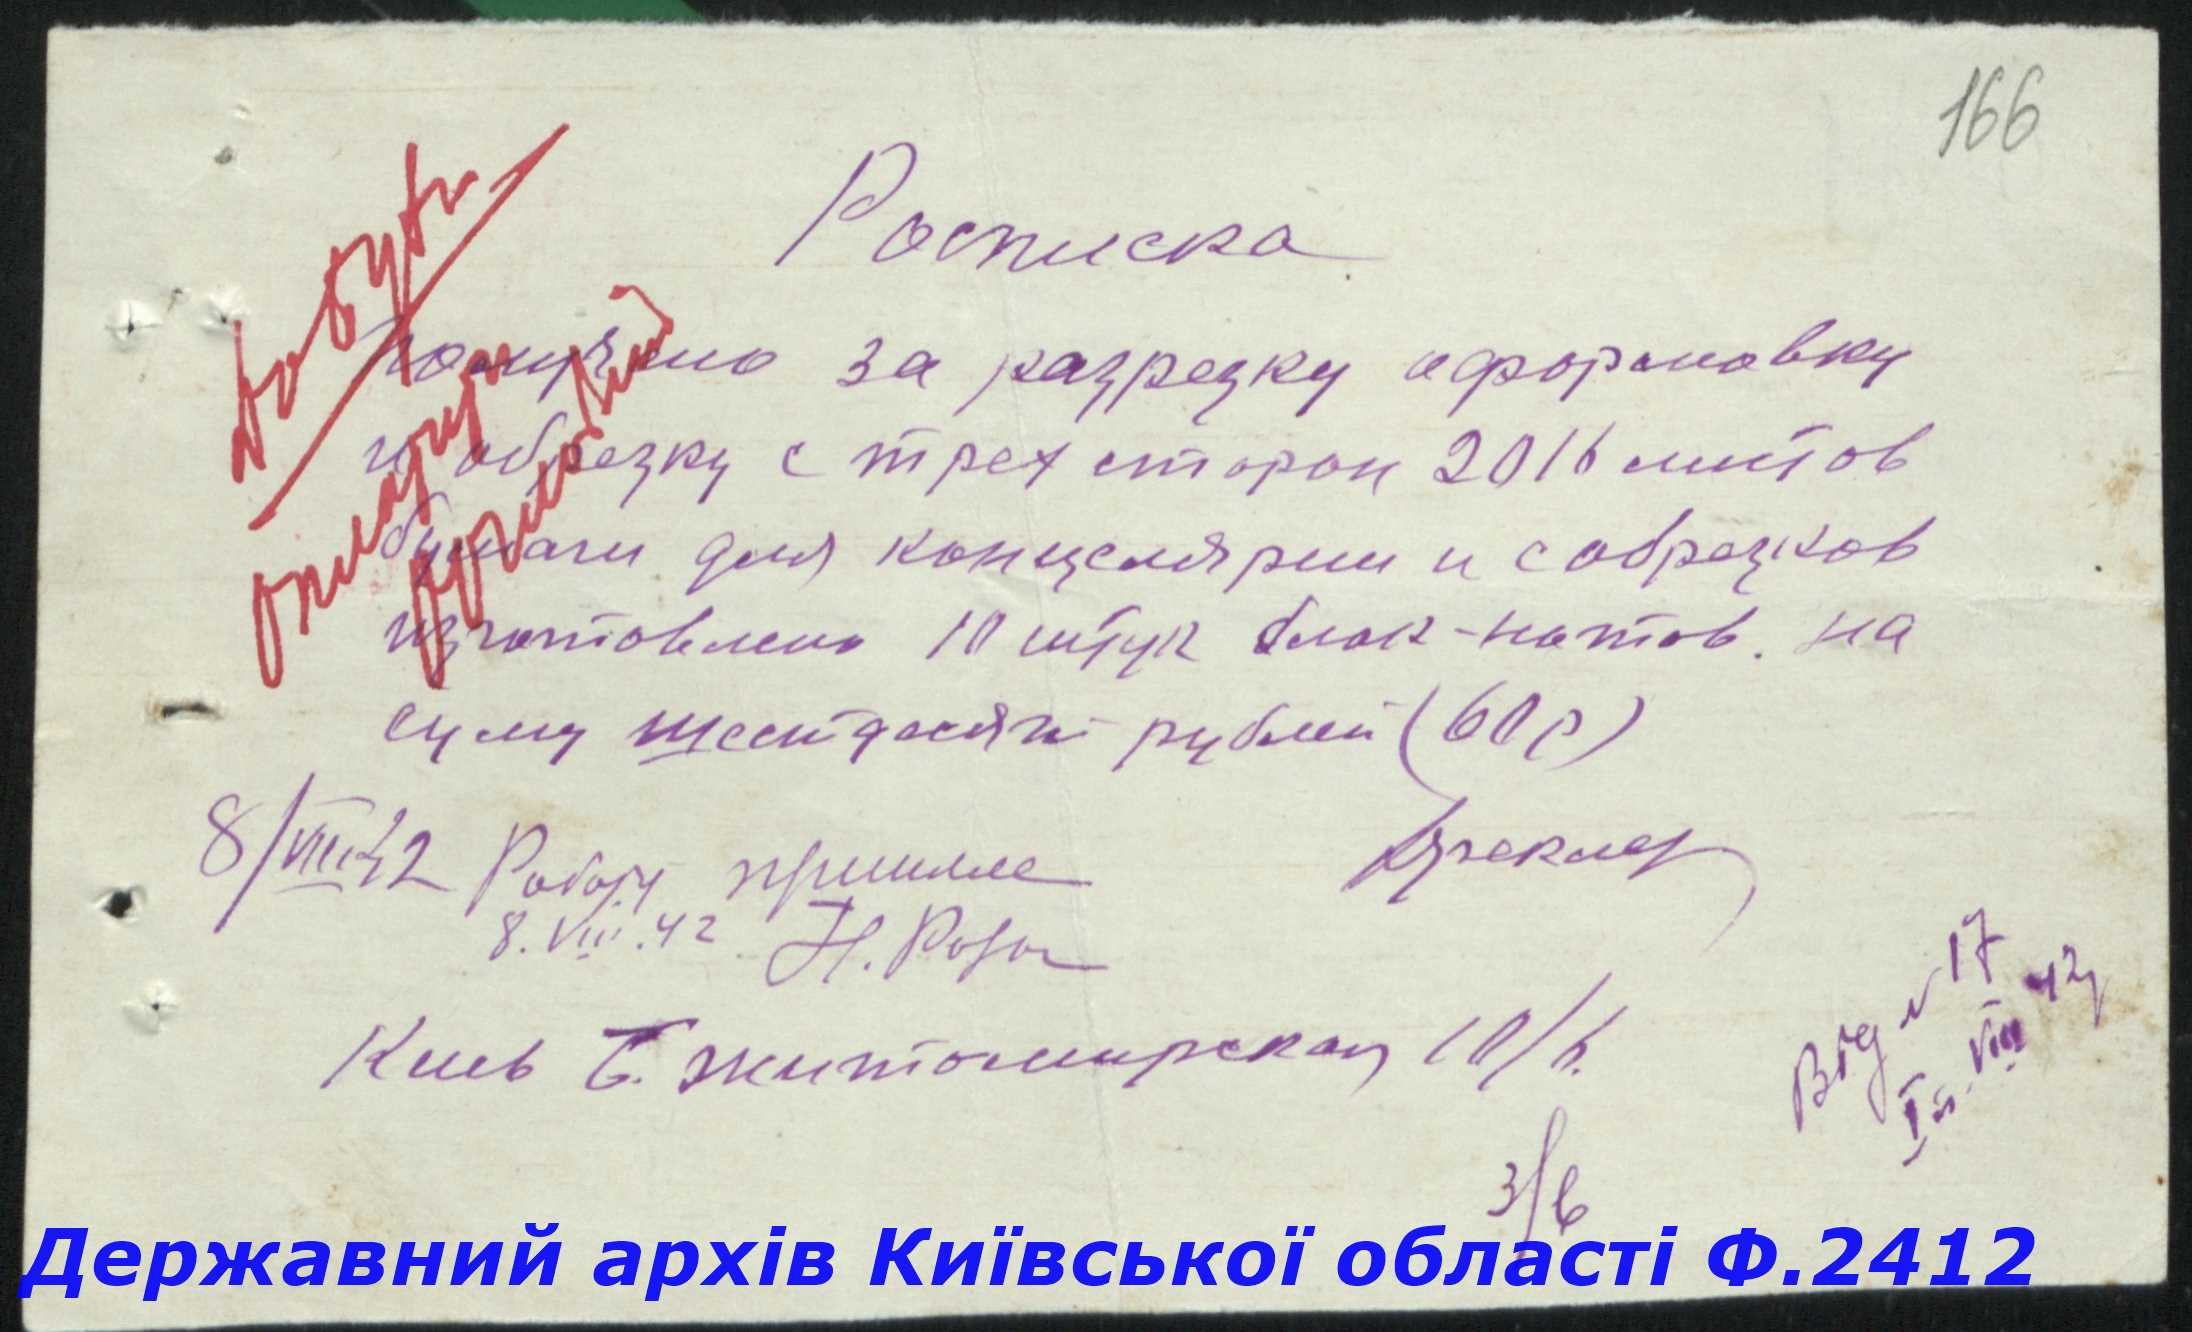 166
Росписка
Получено за разрезку оформовку
и обрезку с трех сторон 2016 листов
бумаги для концелярии и с обрезков
изготовлено 10 штук блок-нотов. на
суму шестдесят рублей (60 р)
8/VIII 42 Роботу
8.VIII.42 Н.
Киев Б. Житомирская 10/6.
№ 17
VIII 42
З/в
Державний архів Київської області Ф.2412